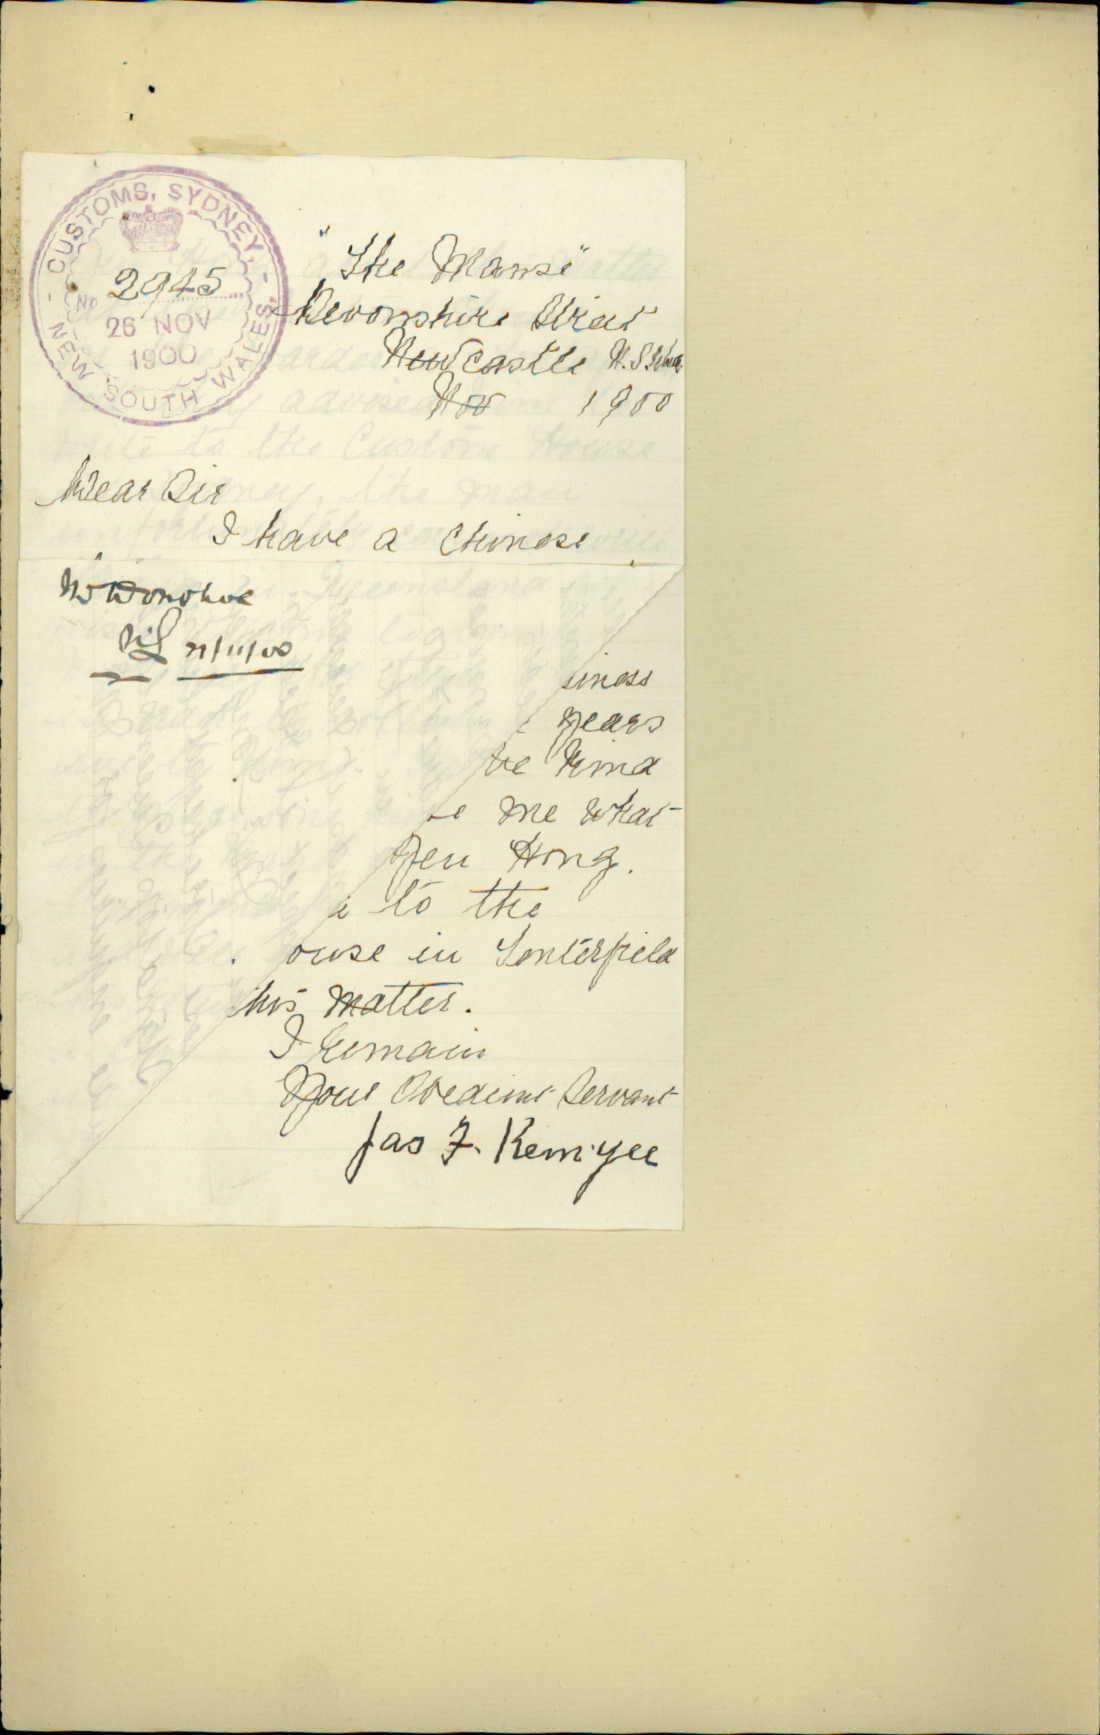 CUSTOMS, SYDNEY,
NEW SOUTH WALES.
No 2945
26 NOV
1900
"The Manse"
Devonshire Street
Newcastle N.S.Wales
Nov 1900
Dear Sir
I have a Chinese
Mr Donohoe
/11/00
siness
years
be kind
me what
Yeu Hong.
to the
ouse in Tenterfield
his matter.
I remain
Your Obedient Servant
Jas F. Kem Yee